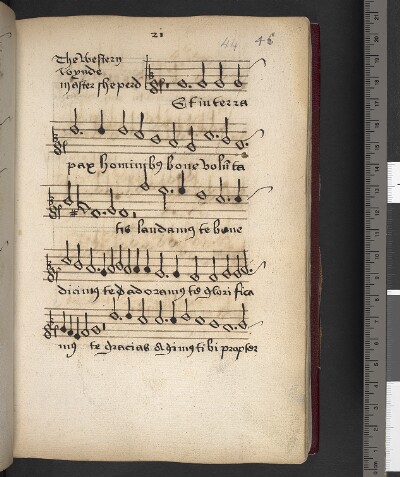 21
44 45
The Western
wynde
master sheperd
Et in terra
pax hominibus bone volūta
tis laudamus te bene
dicimus te adoramus te glorifica
mus te gracias agimus tibi propter